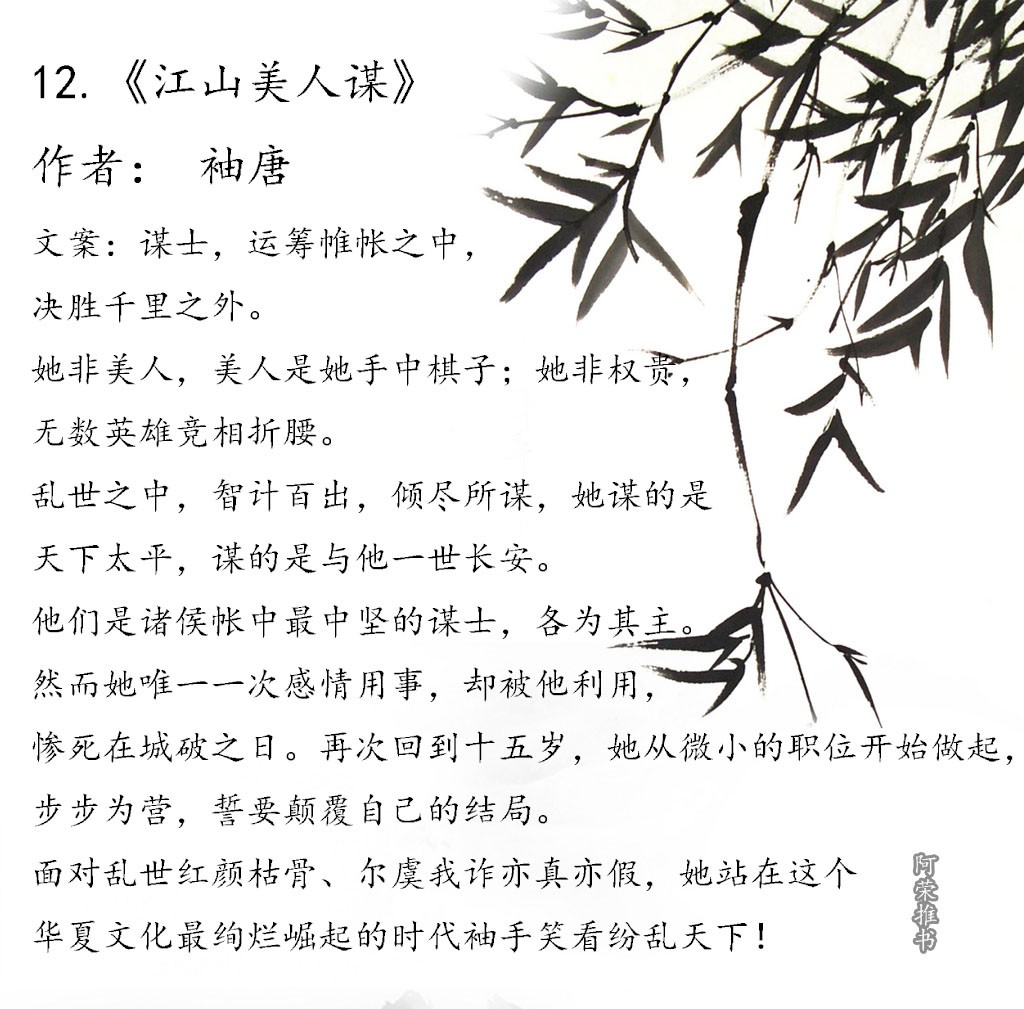 12.《江山美人谋》
作者： 袖唐
文案：谋士，运筹帷帐之中，
决胜千里之外。
她非美人，美人是她手中棋子；她非权贵，
无数英雄竞相折腰。
乱世之中，智计百出，倾尽所谋，她谋的是
天下太平，谋的是与他一世长安。
他们是诸侯帐中最中坚的谋士，各为其主。
然而她唯一一次感情用事，却被他利用，
惨死在城破之日。再次回到十五岁，她从微小的职位开始做起，
步步为营，誓要颠覆自己的结局。
面对乱世红颜枯骨、尔虞我诈亦真亦假，她站在这个
华夏文化最绚烂崛起的时代袖手笑看纷乱天下！
阿荣推书